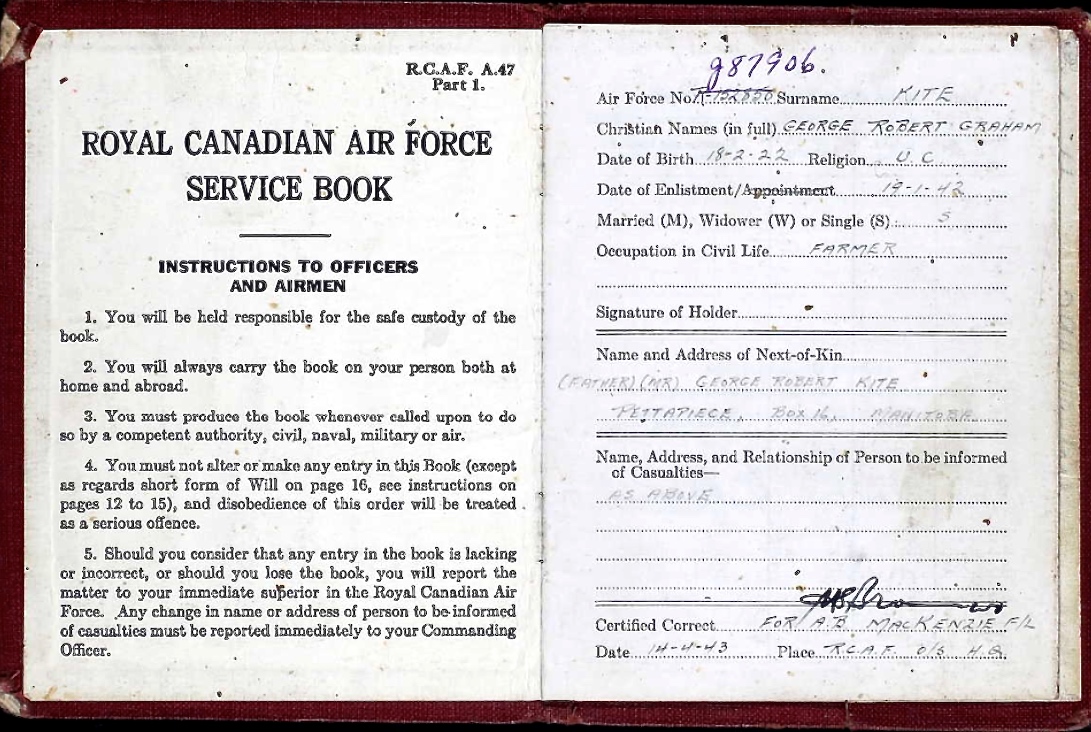 R.C.A.F. A.47
Part 1.
ROYAL CANADIAN AIR FORCE
SERVICE BOOK
INSTRUCTIONS TO OFFICERS
AND AIRMEN
1. You will be held responsible for the safe custody of the
book.
2. You will always carry the book on your person both at
home and abroad.
3. You must produce the book whenever called upon to do
so by a competent authority, civil, naval, military or air.
4. You must not alter or make any entry in this Book (except
as regards short form of Will on page 16, see instructions on
pages 12 to 15), and disobedience of this order will be treated
as a serious offence.
5. Should you consider that any entry in the book is lacking
or incorrect, or should you lose the book, you will report the
matter to your immediate superior in the Royal Canadian Air
Force. Any change in name or address of person to be informed
of casualties must be reported immediately to your Commanding
Officer.
J87906.
Air Force No. Surname KITE
Christian Names (in full) GEORGE ROBERT GRAHAM
Date of Birth 18-2-22 Religion U.C.
Date of Enlistment/Appointment 19-1-42
Married (M), Widower (W) or Single (S) S
Occupation in Civil Life FARMER
Signature of Holder
Name and Address of Next-of-Kin
(FATHER) (MR) GEORGE ROBERT KITE
PETTAPIECE, BOX 16, MANITOBA
Name, Address, and Relationship of Person to be informed
of Casualties—
AS ABOVE
Certified Correct FOR/ A.B. MACKENZIE F/L
Date 14-4-43 Place R.C.A.F. O/S H.Q.